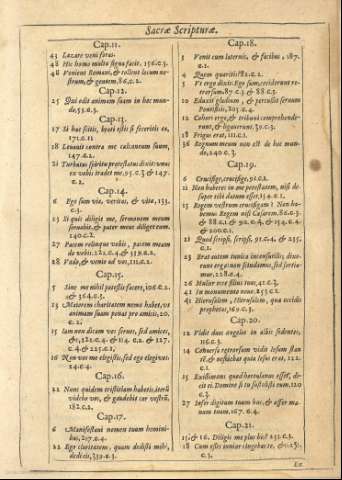 Sacræ Scripturæ.
Cap.11.
43 Lazare veni foras.
48 Hic homo multa signa facit. 156.c.3.
48 Venient Romani, & tollent locum nostrum, & gentem.86.c.2.
Cap.12.
25 Qui odit animam suam in hoc mundo,55.c.3.
Cap.13.
17 Si hæc scitis, beati estis si feceritis ea, 171.c.1.
18 Levavit contra me calcaneum suum, 147.c.2.
21 Turbatus spiritu protestatus dixit: unus ex vobis tradet me, 95.c.3. & 147. c.2.
Cap.14.
6 Ego sum via, veritas, & vita, 153. c.3.
23 Si quis diligit me, sermonem meum servabit. & pater meus diliget eum. 140.c.2.
27 Pacem relinquo vobis, pacem meam do vobis.
28 Vado, & venio ad vos,
Cap.15.
5 Sine me nihil potestis facere,
13 Maiorem charitatem nemo habet, ut animam suam ponat pro amicis, 20. c.2.
15 Iam non dicam vos servos, sed amicos,
16 Non vos me elegistis, sed ego elegi vos. 24.c.4.
Cap.16.
22 Nunc quidem tristitiam habetis, iterū videbo vos, & gaudebit cor vestrū, 182.c.2.
Cap.17.
6 Manifestavi nomen tuum hominibus, 207.c.4.
22 Ego claritatem, quam dedisti mihi, dedi eis, 359.c.3.
Cap.18.
3 Venit cum laternis, & facibus, 187. c.1.
4 Quem quæritis? 82.c.2.
6 Ut ergo dixit: Ego sum, ceciderunt retrorsum.87.c.3. & 88.c.3.
10 Eduxit gladium, & percussit servum Pontificis, 203.c.4.
12 Cohors ergo, & tribuni comprehenderunt, & ligaverunt.39.c.3.
18 Frigus erat, 111.c.1.
36 Regnum meum non est de hoc mundo, 240.c.3.
Cap.19.
6 Crucifige, crucifige, 91.c.2.
11 Non haberes in me potestatem, nisi desuper tibi datum esset, 154.c.1.
15 Regem vestrum crucifigam? Non habemus Regem nisi Cæsarem.
22 Quod scripsi, scripsi,
23 Erat autem tunica inconsutilis; dixerunt ergo: non scindamus, sed sortiamur, 128.c.4.
26 Mulier ecce filius tuus, 41.c.3.
41 in monumento novo.
Hierusalem, Hierusalem, quæ occidis prophetas, 169.c.3.
Cap.20.
12 Vidit duos angelos in albis sedentes, 116.c.3.
14 Conversa retrorsum vidit Iesum stantē: & nesciebat quia Iesus erat, 122. c.1.
15 Existimans quod hortulanus esset, dicit ei. Domine si tu sustulisti eum, 120 c.3.
27 Infer digitum tuum huc, & affer manum tuam. 167.c.4.
Cap.21.
15. & 16. Diligis me plus his? 252.c.3.
18 Cum esses iunior cingebas te,
Et